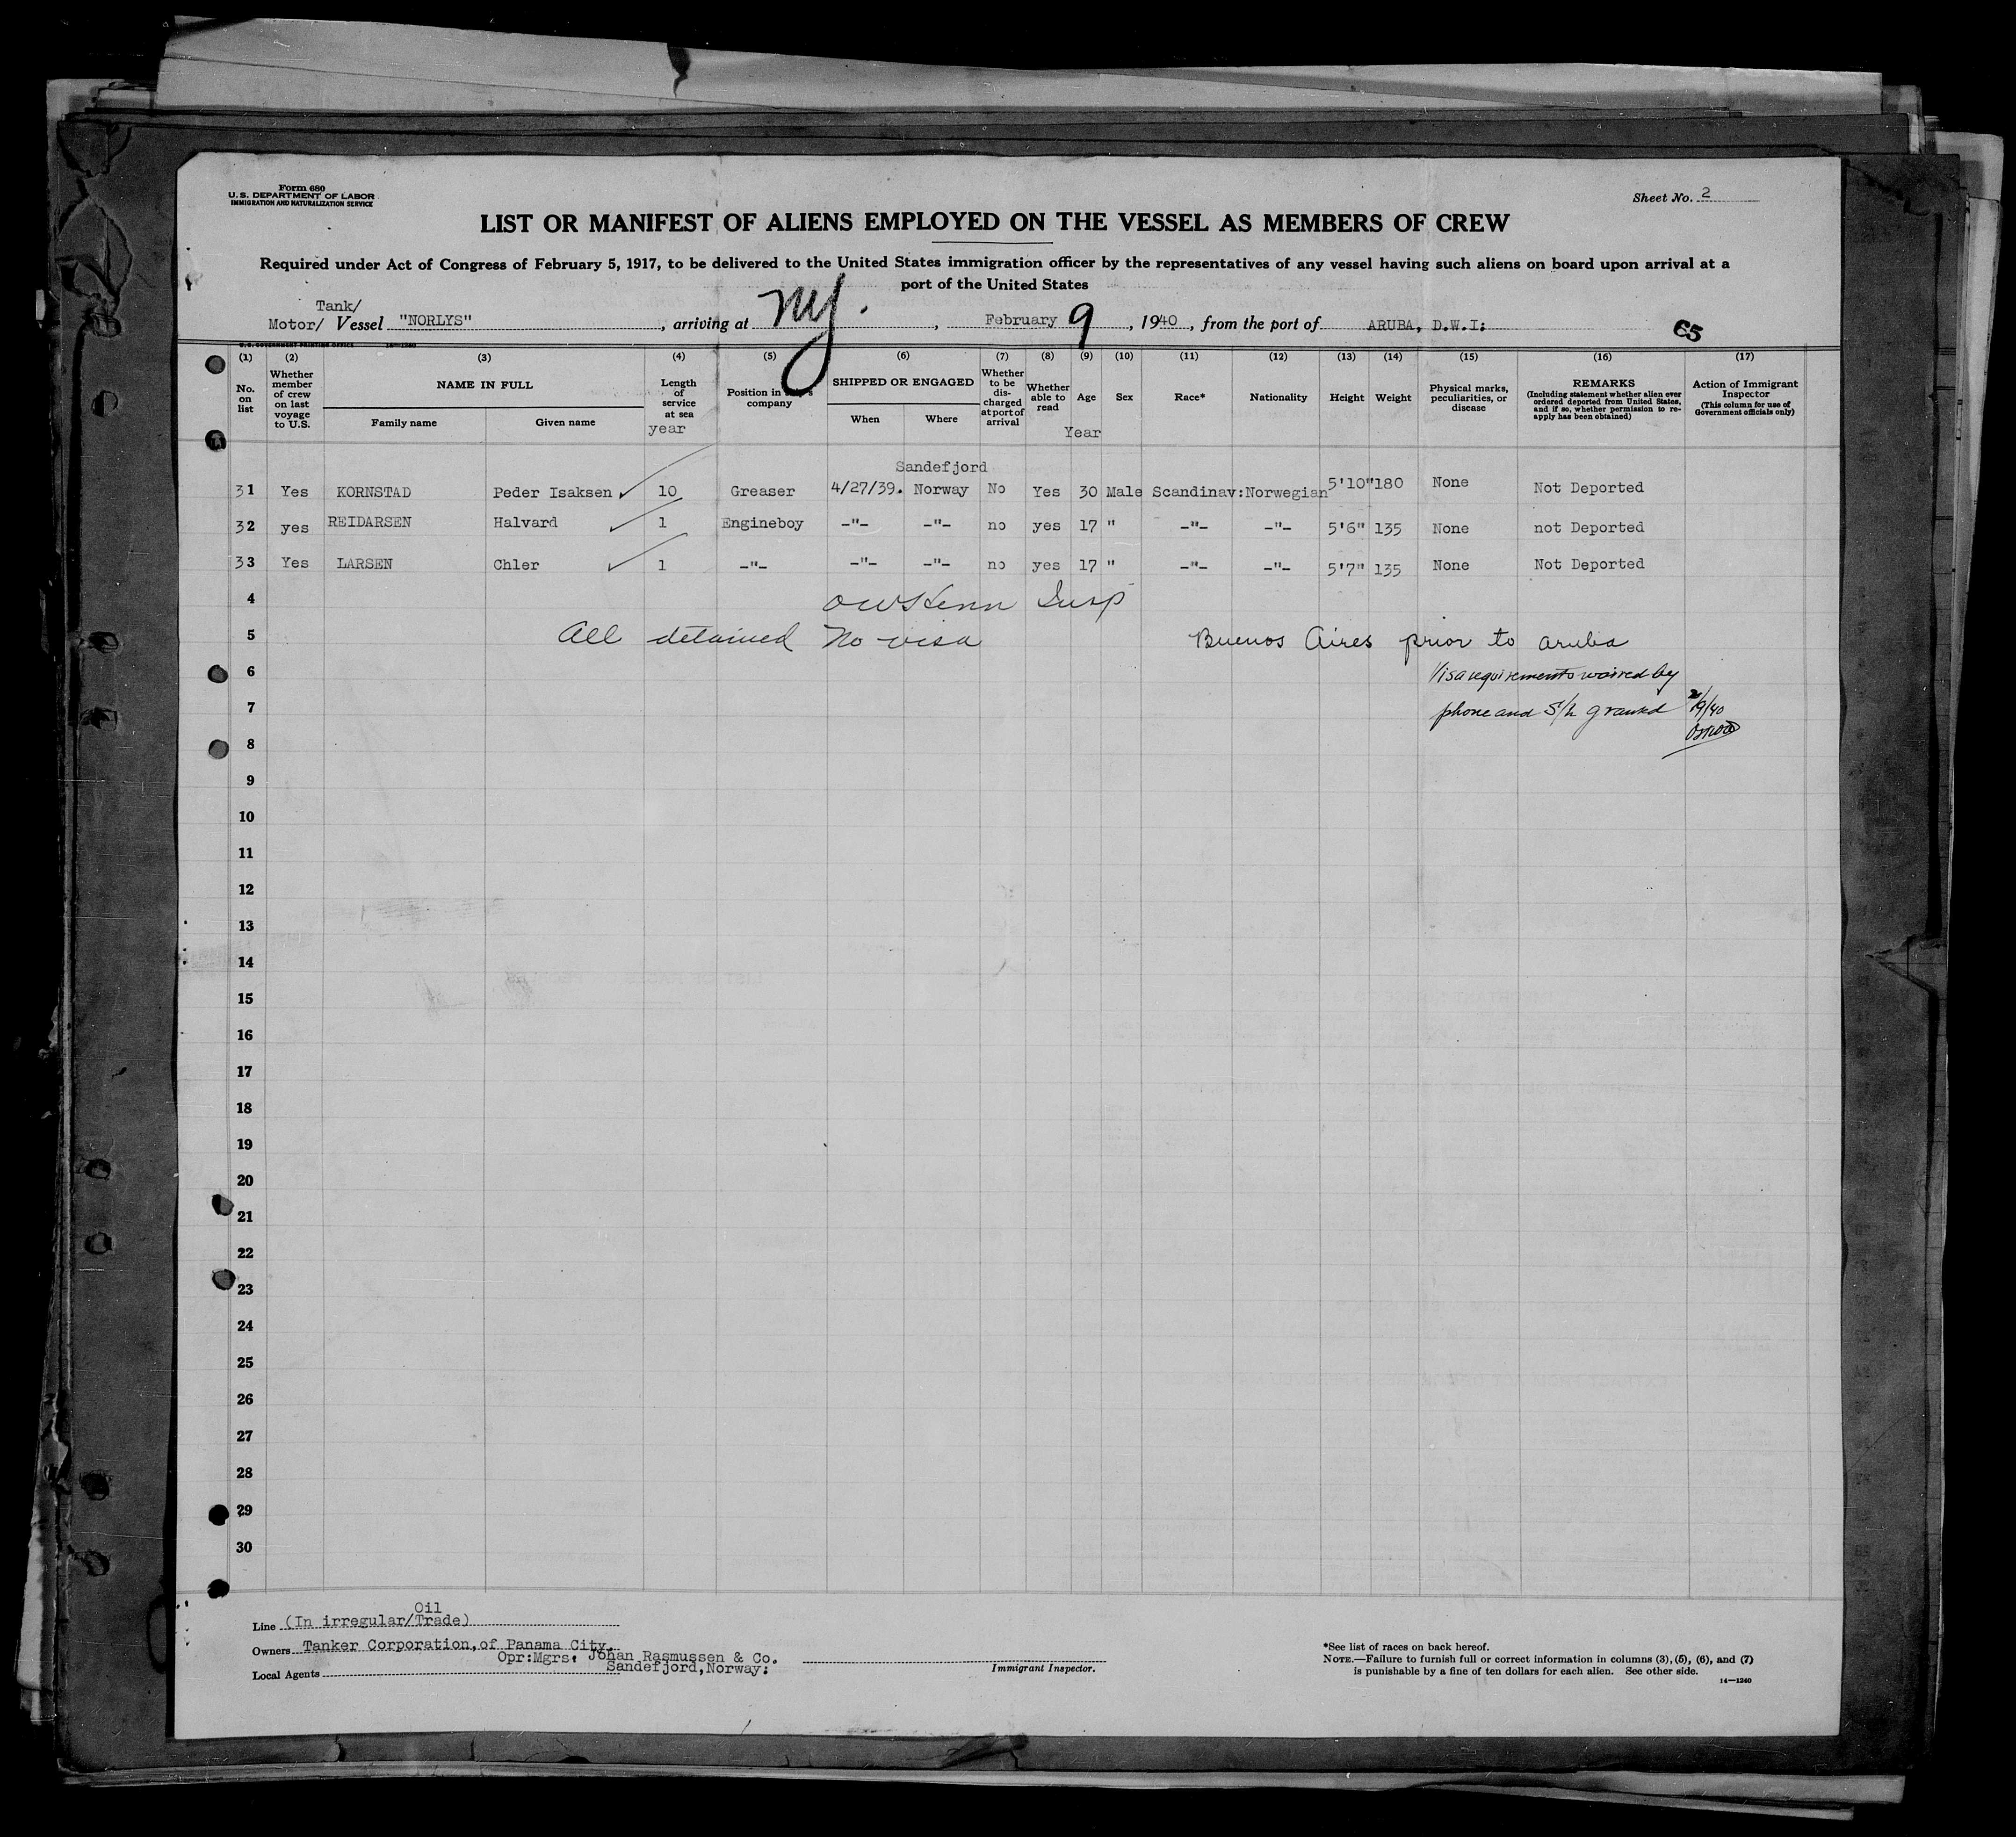 Form 680
U. S. DEPARTMENT OF LABOR
IMMIGRATION AND NATURALIZATION SERVICE
Sheet No. 2
LIST OR MANIFEST OF ALIENS EMPLOYED ON THE VESSEL AS MEMBERS OF CREW
Required under Act of Congress of February 5, 1917, to be delivered to the United States immigration officer by the representatives of any vessel having such aliens on board upon arrival at a
port of the United States
Tank/
Motor/ Vessel "NORLYS", arriving at NY., February 9, 1940, from the port of ARUBA, D.W.I:
65
U. S. GOVERNMENT PRINTING OFFICE
(1) (2) (3) (4) (5) (6) (7) (8) (9) (10) (11) (12) (13) (14) (15) (16) (17)
No. on list Whether member of crew on last voyage to U.S. NAME IN FULL Family name Given name Length of service at sea year Position in company SHIPPED OR ENGAGED When Where Whether to be discharged at port of arrival Whether able to read Age Year Sex Race* Nationality Height Weight Physical marks, peculiarities, or disease REMARKS (Including statement whether alien ever ordered deported from United States, and if so, whether permission to reapply has been obtained) Action of Immigrant Inspector (This column for use of Government officials only)
Sandefjord
31 Yes KORNSTAD Peder Isaksen 10 Greaser 4/27/39. Norway No Yes 30 Male Scandinav: Norwegian 5'10" 180 None Not Deported
32 yes REIDARSEN Halvard 1 Engineboy -"- -"- no yes 17 " -"- -"- 5'6" 135 None not Deported
33 Yes LARSEN Chler 1 -"- -"- -"- no yes 17 " -"- -"- 5'7" 135 None Not Deported
4 Insp
5 All detained No visa Buenos Aires prior to Aruba
6 Visa requirements waived by
7 phone and S/L granted 2/9/40
8
9
10
11
12
13
14
15
16
17
18
19
20
21
22
23
24
25
26
27
28
29
30
Oil
Line (In irregular/Trade)
Owners Tanker Corporation, of Panama City.
Opr:Mgrs: Johan Rasmussen & Co.
Local Agents Sandefjord, Norway:
Immigrant Inspector.
*See list of races on back hereof.
NOTE.—Failure to furnish full or correct information in columns (3), (5), (6), and (7)
is punishable by a fine of ten dollars for each alien. See other side.
14—1240